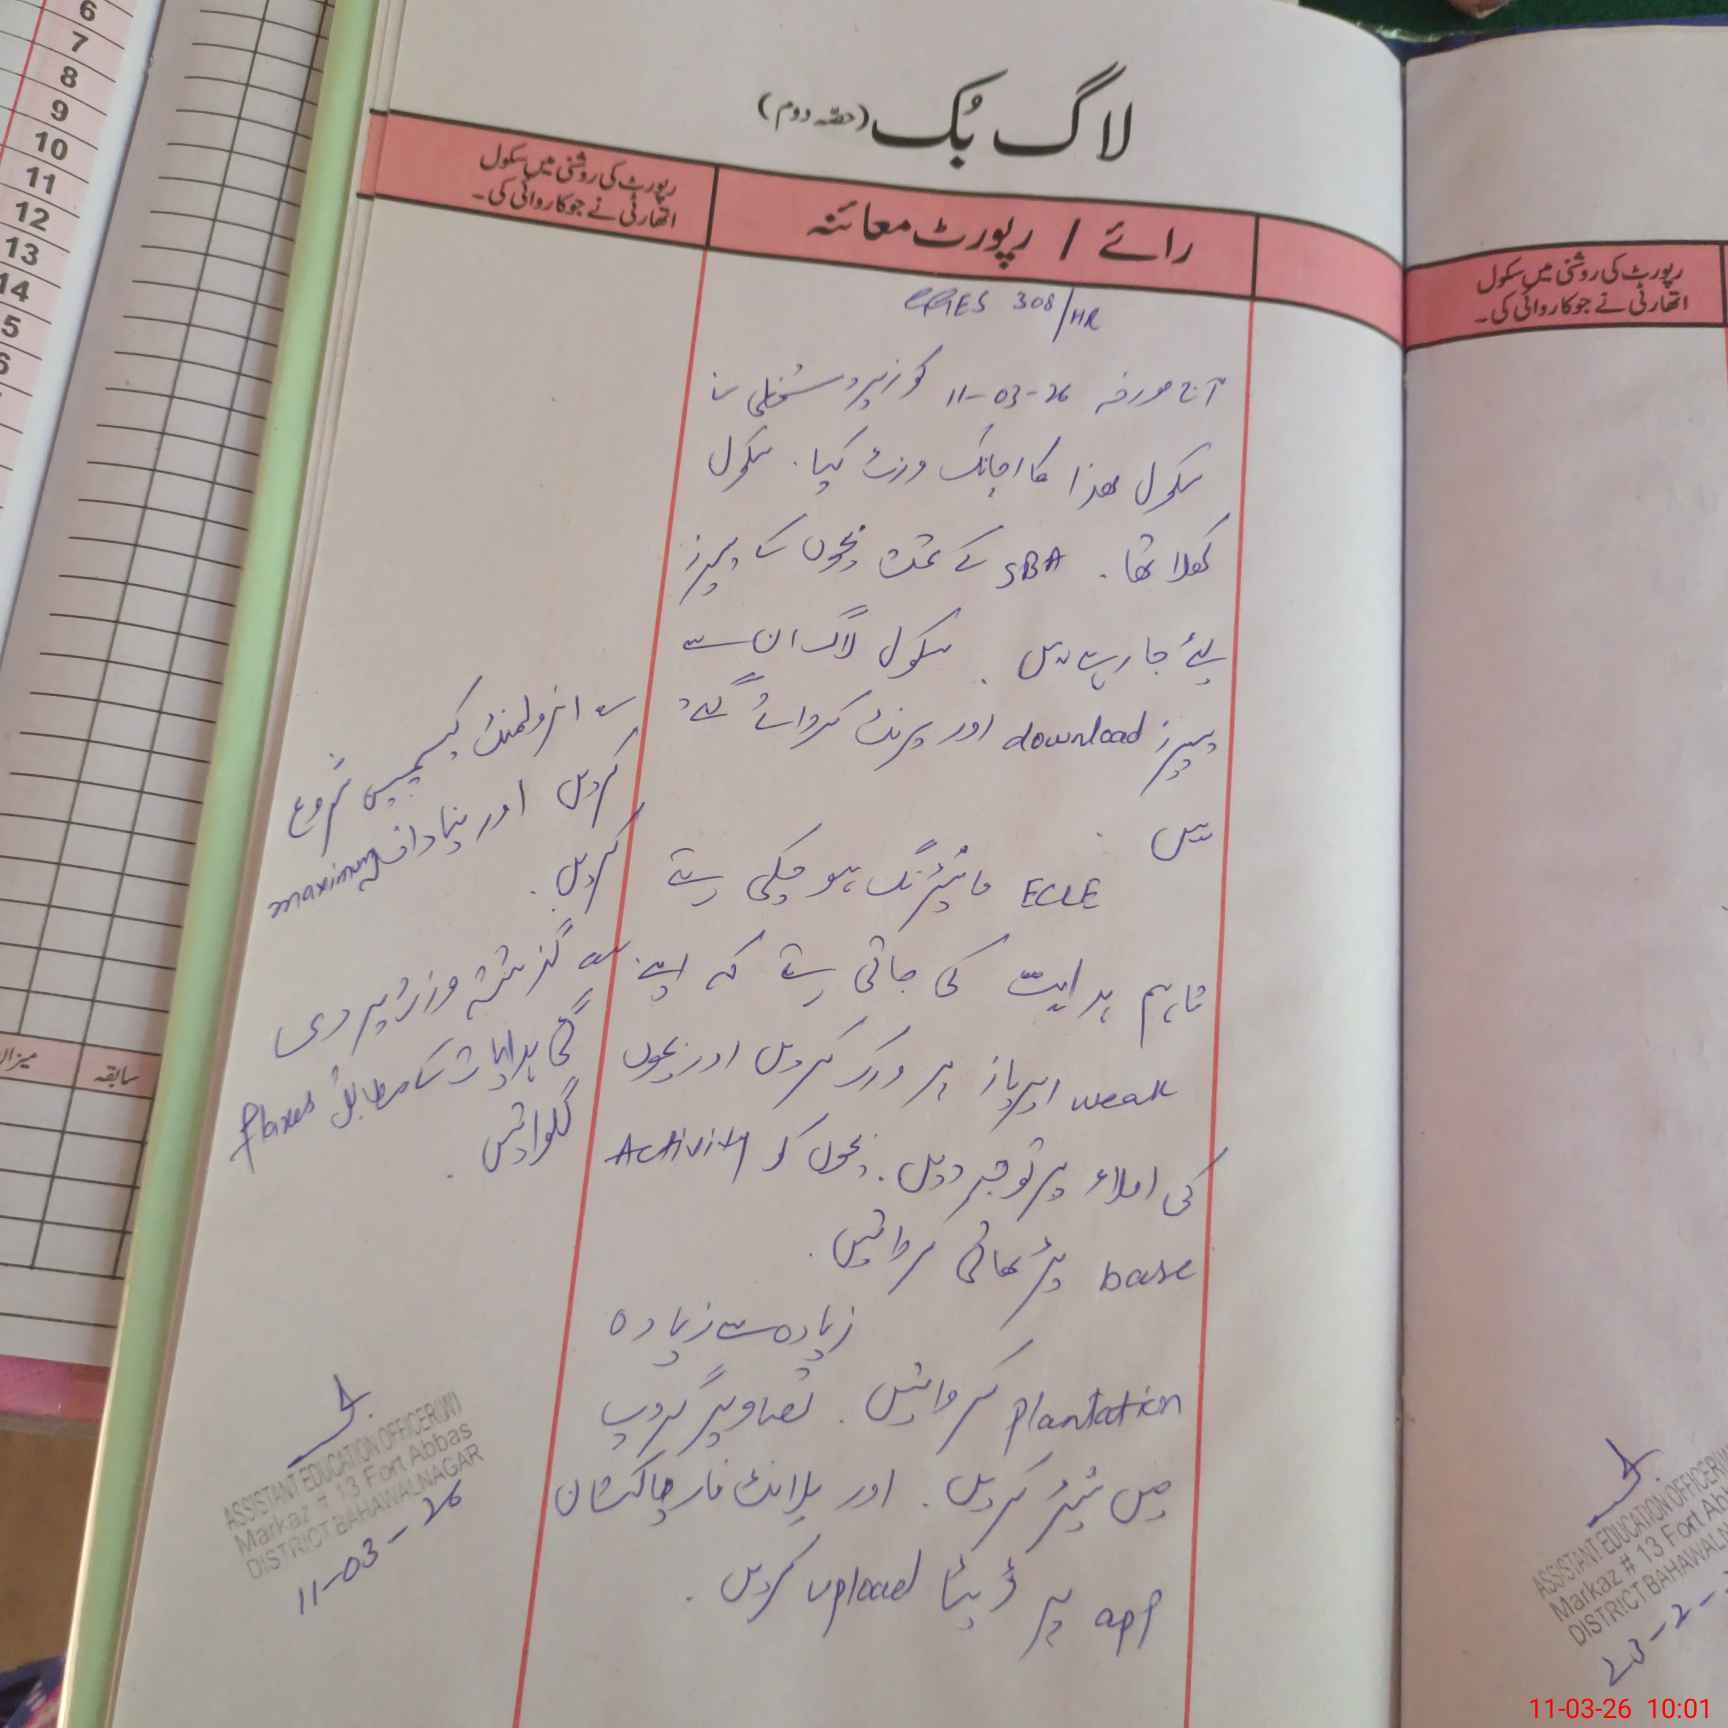 لاگ بُک (حصّہ دوم)
رائے / رپورٹ معائنہ
رپورٹ کی روشنی میں سکول
اتھارٹی نے جو کاروائی کی۔
308/HR
آج مورخہ 11-03-26 کو زیر دستخطی نے
سکول ھذا کا اچانک وزٹ کیا۔ سکول
کھلا تھا۔ SBA کے تحت بچوں کے پیپرز
لئے جا رہے ہیں۔ سکول لاگ ان سے
پیپرز download اور پرنٹ کروائے گئے
ہیں۔
ECCE مانیٹرنگ ہو چکی ہے
تاہم ہدایت کی جاتی ہے کہ اپنے
weak ایریاز پر ورک کریں اور بچوں
کی املاء پر توجہ دیں۔ بچوں کو Activity
base پڑھائی کروائیں۔
زیادہ سے زیادہ
plantation کروائیں۔ تصاویر گروپ
میں شیئر کریں۔ اور پلانٹ فار پاکستان
app پر ڈیٹا upload کریں۔
انرولمنٹ کیمپین شروع
کریں اور نیا داخلہ maximum
کریں۔
گزشتہ وزٹ پر دی
گئی ہدایات کے مطابق flaxes
لگوائیں۔
ASSISTANT EDUCATION OFFICER(W)
Markaz # 13 Fort Abbas
DISTRICT BAHAWALNAGAR
11-03-26
رپورٹ کی روشنی میں سکول
اتھارٹی نے جو کاروائی کی۔
ASSISTANT EDUCATION OFFICER(W
Markaz # 13 Fort Ab
DISTRICT BAHAWALN
23-2-
6
7
8
9
10
11
12
13
14
5
6
سابقہ
میزان
11-03-26 10:01